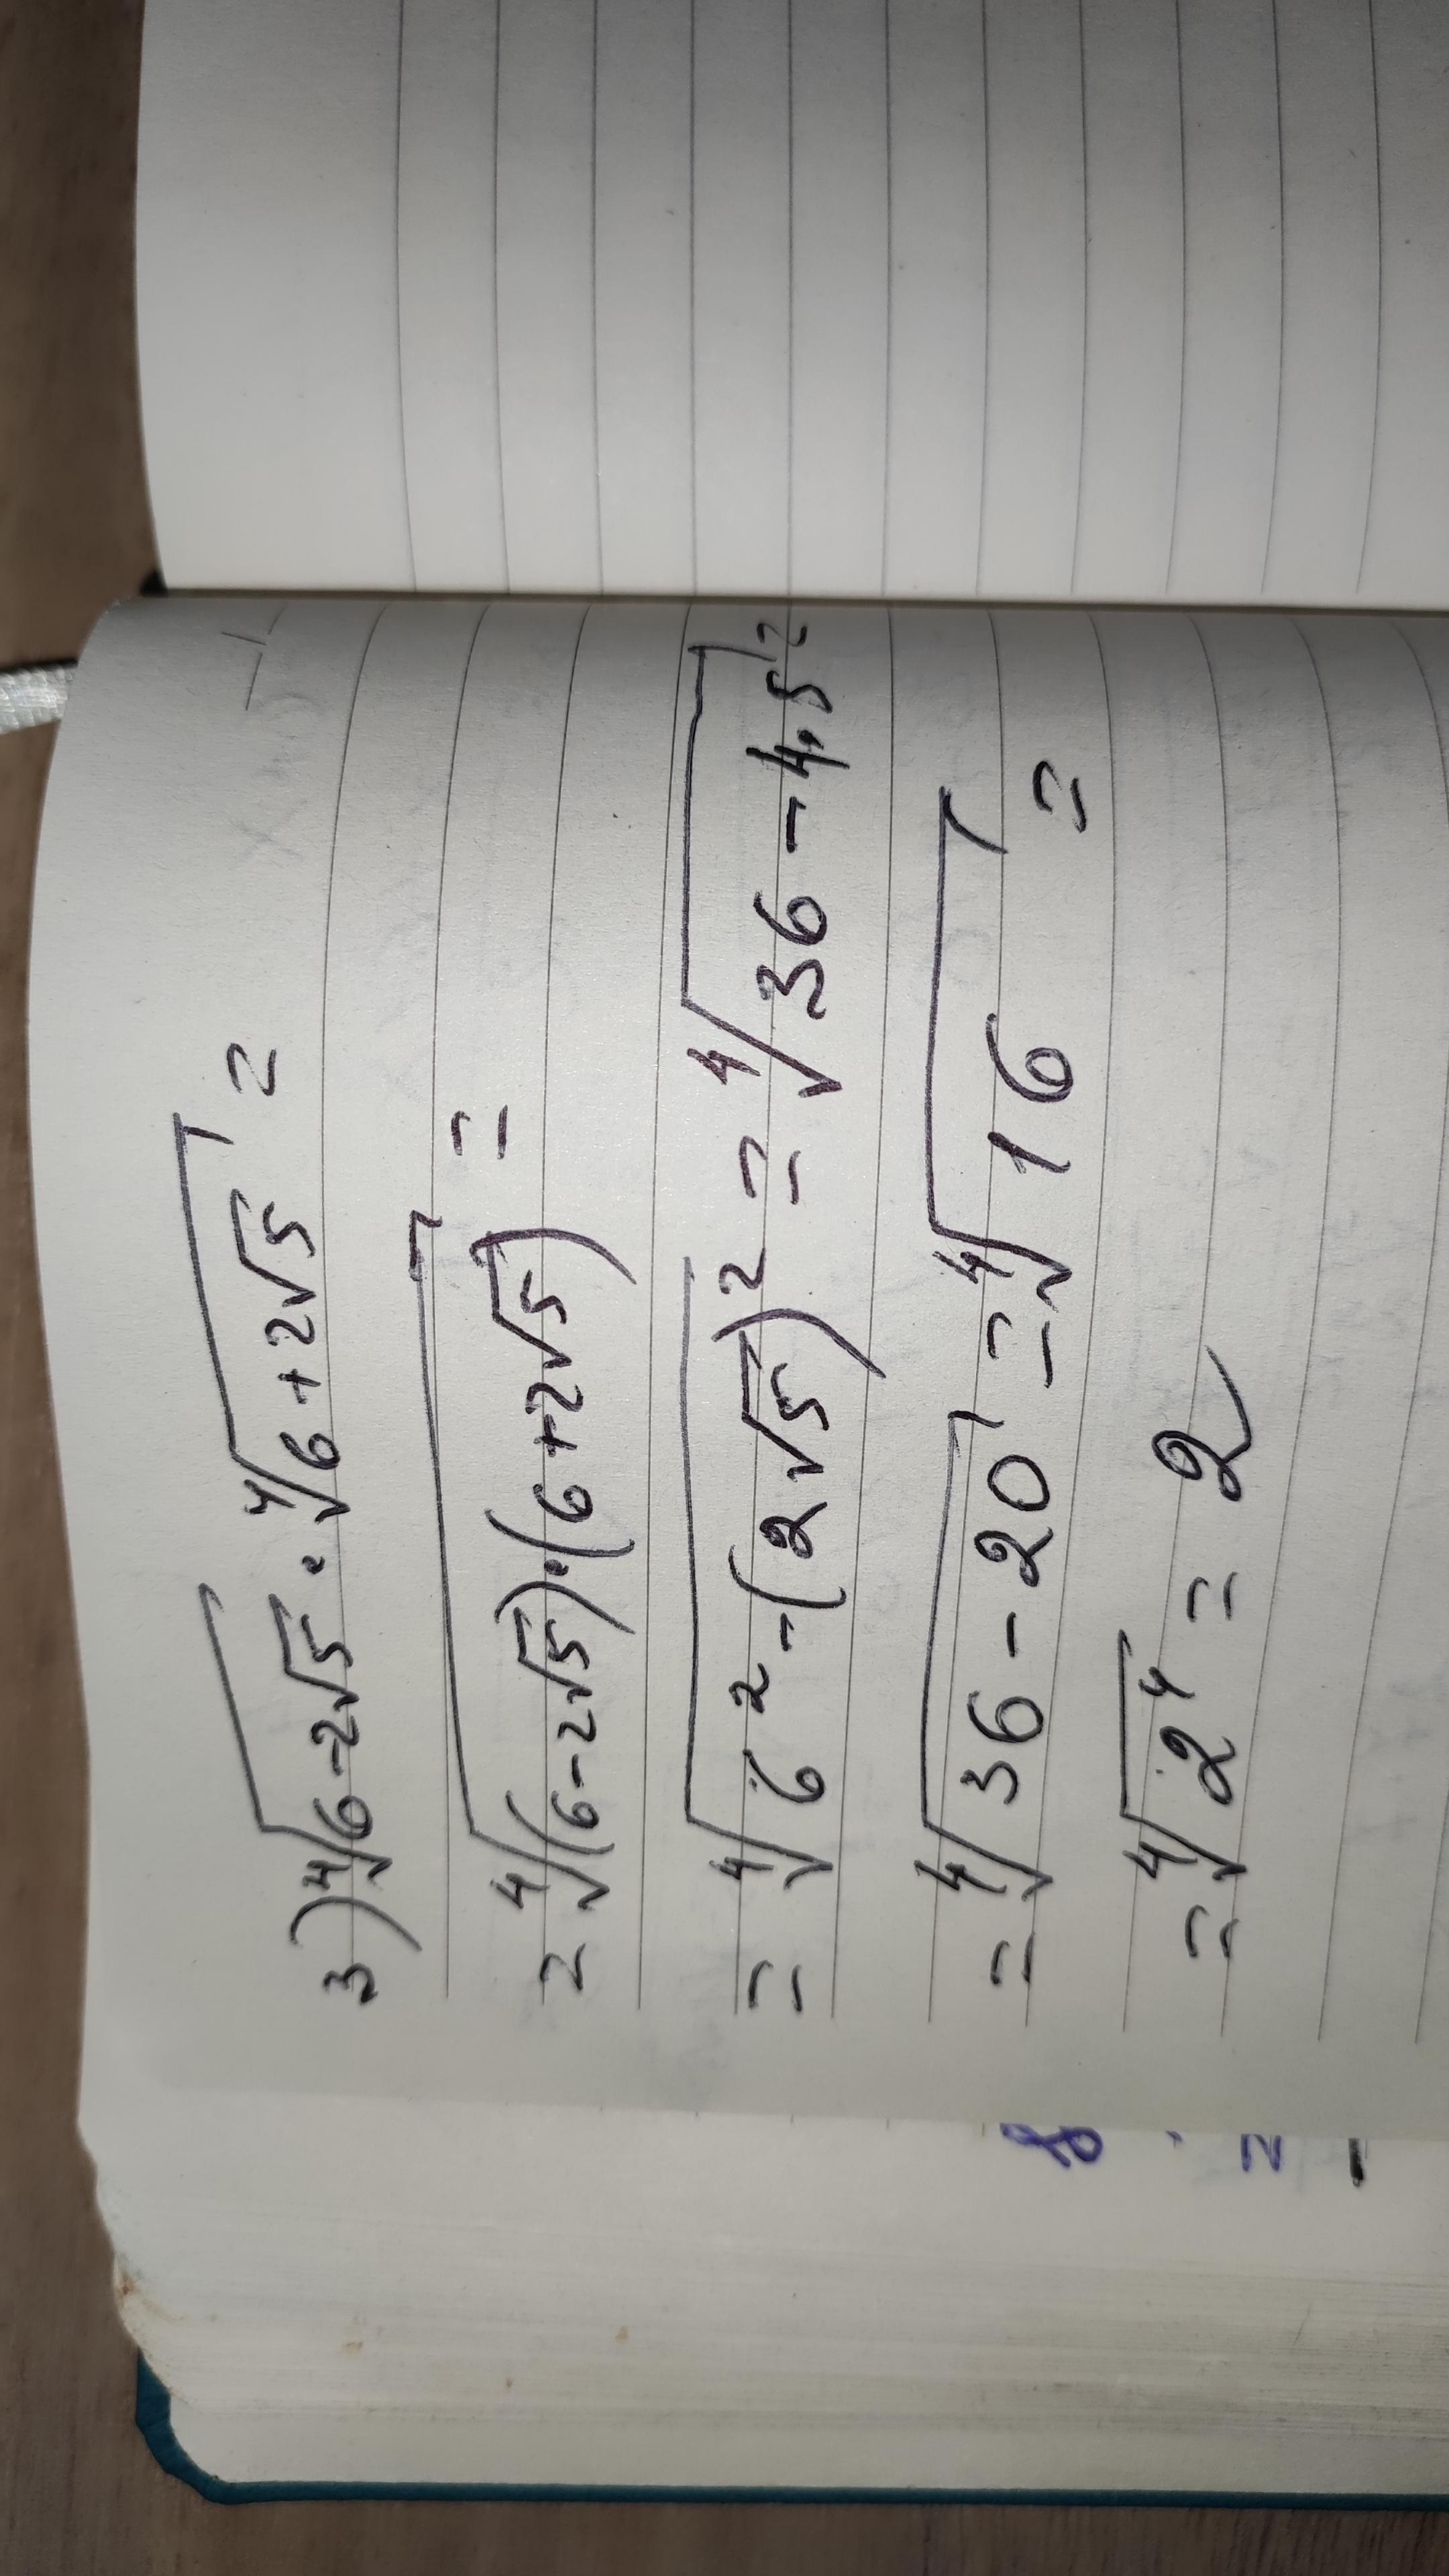 3) ⁴√(6-2√5) · ⁴√(6+2√5) =
= ⁴√((6-2√5)·(6+2√5)) =
= ⁴√(6²-(2√5)²) = ⁴√(36-4·5) =
= ⁴√(36-20) = ⁴√16 =
= ⁴√2⁴ = 2